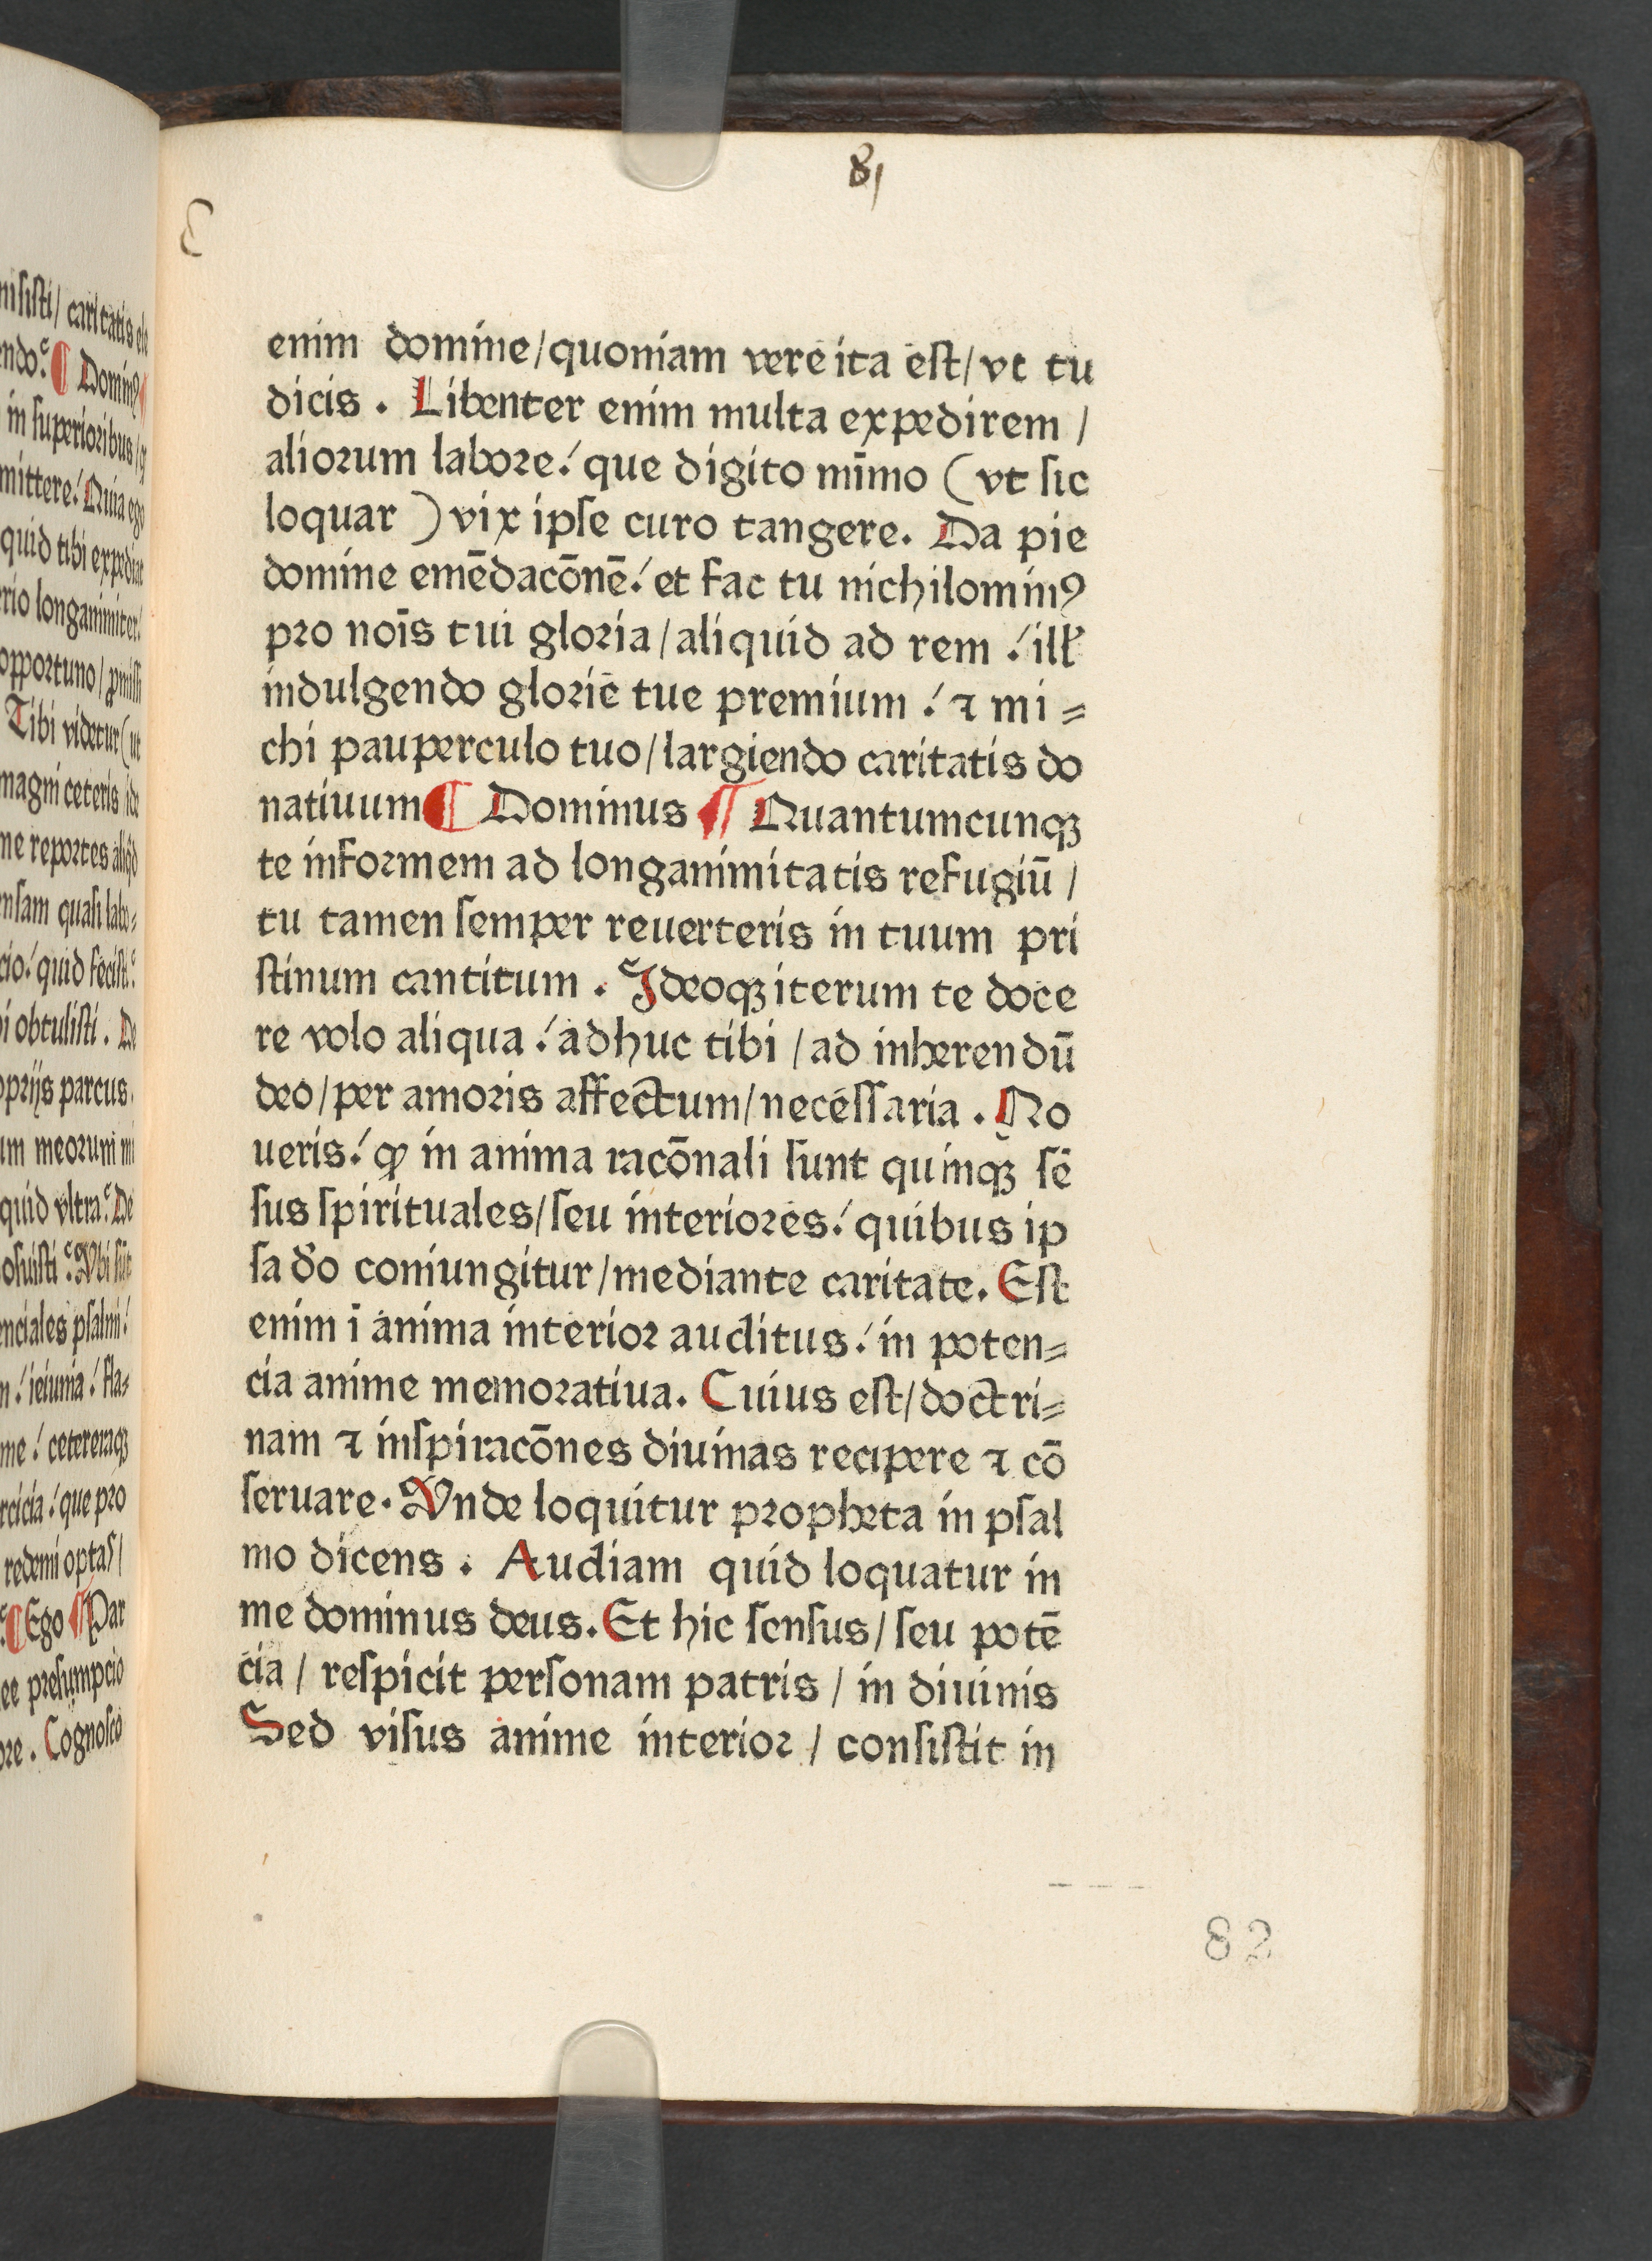 81
enim domine/quoniam vere ita est/vt tu
dicis . Libenter enim multa expedirem /
aliorum labore:́ que digito mīmo (vt sic
loquar ) vix ipse curo tangere. Da pie
domine emēdacōnē:́ et fac tu nichilominꝰ
pro nōis tui gloria/aliquid ad rem :́ ill'
indulgendo glorie tue premium :́ ⁊ mi⸗
chi pauperculo tuo/largiendo caritatis do
natiuum ¶ Dominus ¶ Quantumcunqꝫ
te informem ad longanimitatis refugiū /
tu tamen semper reuerteris in tuum pri
stinum cantitum . Ideoqꝫ iterum te doce
re volo aliqua :́ adhuc tibi / ad inherendū
deo/per amoris affectum/necessaria . No
ueris:́ ꝙ in anima racōnali sunt quinqꝫ sē
sus spirituales/seu interiores:́ quibus ip
sa d'o coniungitur/mediante caritate. Est
enim ī anima interior auditus:́ in poten⸗
cia anime memoratiua. Cuius est/doctri⸗
nam ⁊ inspiracōnes diuinas recipere ⁊ cō
seruare. Vnde loquitur propheta in psal
mo dicens . Audiam quid loquatur in
me dominus deus. Et hic sensus/seu potē
cia / respicit personam patris / in diuinis
Sed visus anime interior / consistit in
82